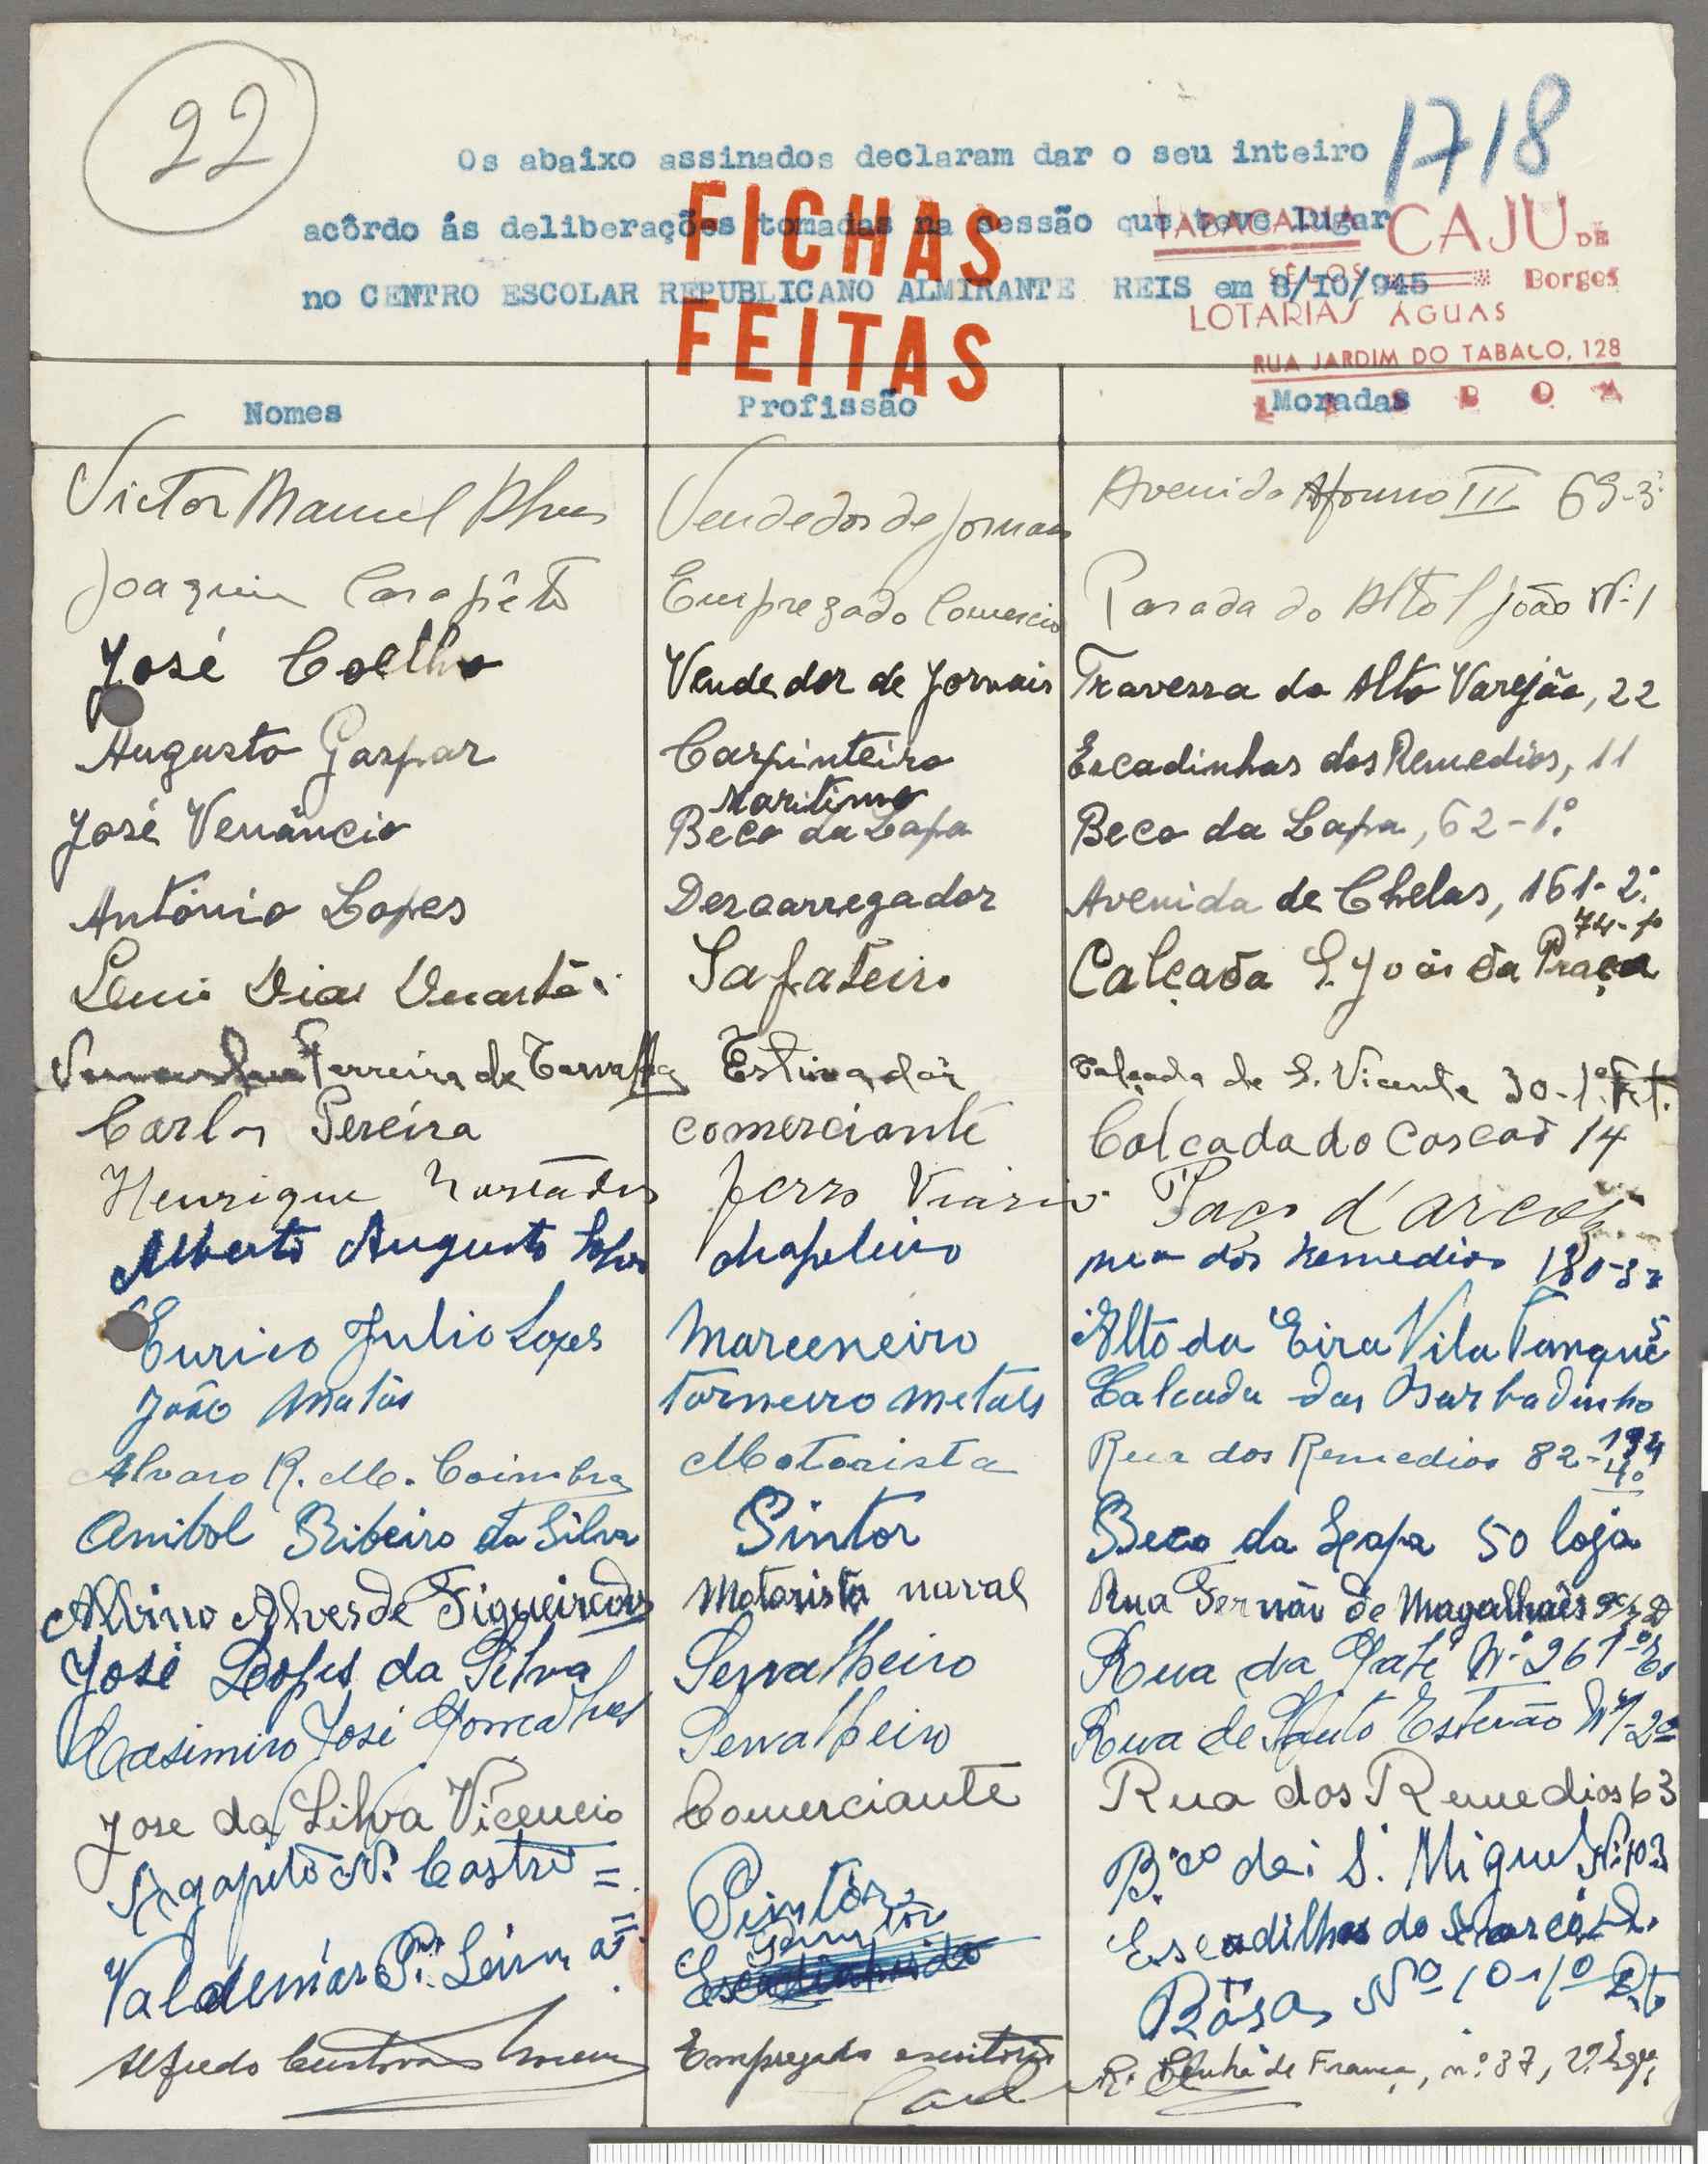 22
1718
Os abaixo assinados declaram dar o seu inteiro
acôrdo ás deliberações tomadas na sessão que teve lugar
no CENTRO ESCOLAR REPUBLICANO ALMIRANTE REIS em 8/10/945
FICHAS
FEITAS
TABACARIA CAJU DE
SÊLOS Borges
LOTARIAS ÁGUAS
RUA JARDIM DO TABACO, 128
LISBOA
Nomes Profissão Moradas
Victor Manuel Alves Vendedor de Jornaes Avenida Afonso III 69-3º
Joaquim Carapêto Empregado Comercio Parada do Alto S João Nº 1
José Coelho Vendedor de Jornais Travessa do Alto Varejão, 22
Augusto Gaspar Carpinteiro Escadinhas dos Remedios, 11
Maritimo
José Venâncio Beco da Lapa Beco da Lapa, 62-1º
António Lopes Descarregador Avenida de Chelas, 161-2º
74-
Dias Duarte Sapateiro Calçada S. João da Praça
Ferreira de Carvalho Estivador Calçada de S. Vicente 30-1º
Carlos Pereira comerciante Calçada do Cascão 14
Henrique Ferro Viario Paço d'arcos
Alberto Augusto chapeleiro rua dos Remedios 180-3
Eurico Julio Lopes Marceneiro Alto da Eira Vila Tanque 5
João Matos Torneiro metais Calcada dos Barbadinho
194
Alvaro R. M. Coimbra Motorista Rua dos Remedios 82-4º
Anibal Ribeiro da Silva Pintor Beco da Lapa 50 loja
Albino Alves de Figueiredo Motorista naval Rua Fernão de Magalhães
José Lopes da Silva Serralheiro Rua da Nº 26 1º
Casimiro José Gonçalves Serralheiro Rua de Santo Estevão
Jose da Silva Vicencio Comerciante Rua dos Remedios 63
Agapito N. Castro = Pintor B.co de S. Miguel Nº 103
Valdemár P. Pintor Escadilhas do
Rosa, Nº 10-1º Dto
Alfredo Empregado escritorio R. Penha de França, nº 37, 2º Esq.